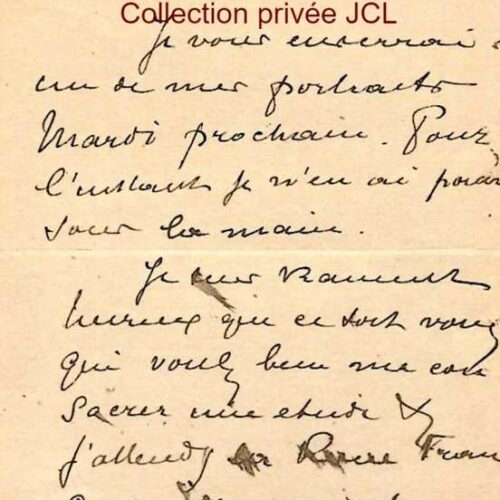 Collection privée JCL
Je vous enverrai
un de mes portraits
Mardi prochain. Pour
l'instant je n'en ai pas
sous la main.
Je suis vraiment
heureux que ce soit vous
qui voulez bien me con
sacrer une etude &
j'attends la Revue Fran